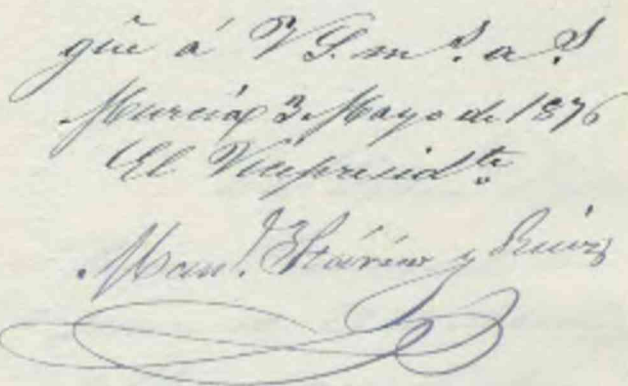 gũe á V.S. m.s a.s
Murcia 3 Mayo de 1876
El Vicepresid.te
Man.l Stárico y Ruiz